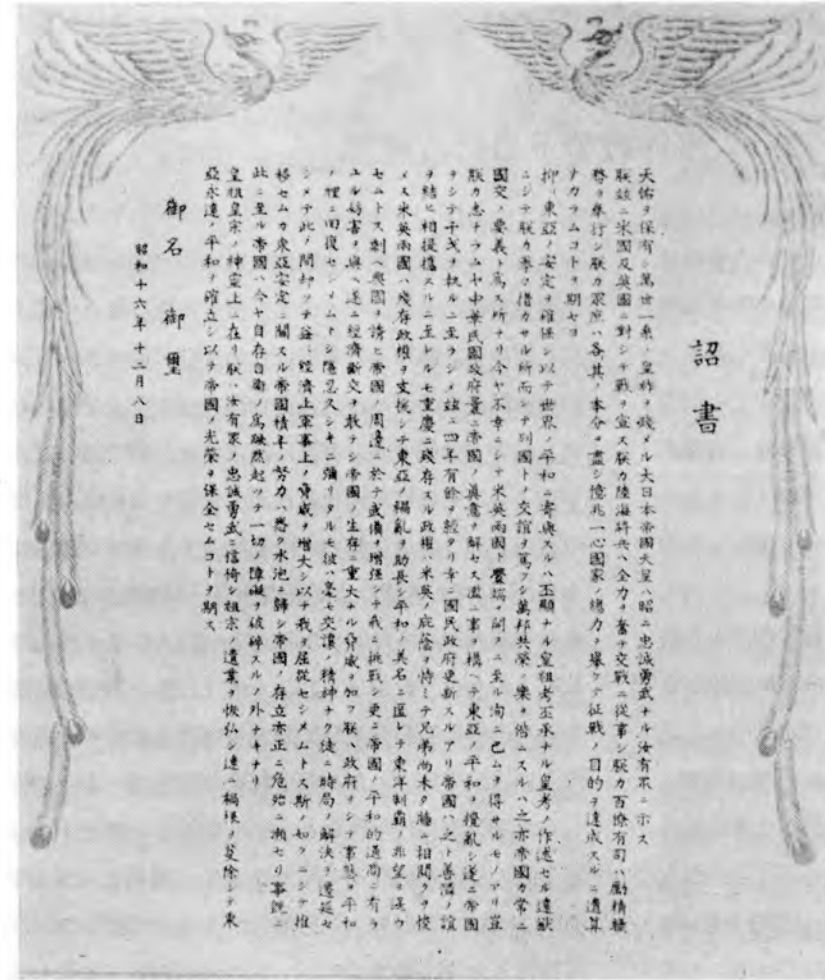 詔書
天佑ヲ保有シ萬世一系ノ皇祚ヲ踐メル大日本帝國天皇ハ昭ニ忠誠勇武ナル汝有衆ニ示ス
朕茲ニ米國及英國ニ對シテ戰ヲ宣ス朕カ陸海將兵ハ全力ヲ奮テ交戰ニ從事シ朕カ百僚有司ハ勵精職
務ヲ奉行シ朕カ衆庶ハ各其ノ本分ヲ盡シ億兆一心國家ノ總力ヲ擧ケテ征戰ノ目的ヲ達成スルニ遺算
ナカラムコトヲ期セヨ
抑〻東亞ノ安定ヲ確保シ以テ世界ノ平和ニ寄與スルハ丕顯ナル皇祖考丕承ナル皇考ノ作述セル遠猷
ニシテ朕カ拳々措カサル所而シテ列國トノ交誼ヲ篤クシ萬邦共榮ノ樂ヲ偕ニスルハ之亦帝國カ常ニ
國交ノ要義ト爲ス所ナリ今ヤ不幸ニシテ米英兩國ト釁端ヲ開クニ至ル洵ニ已ムヲ得サルモノアリ豈
朕カ志ナラムヤ中華民國政府曩ニ帝國ノ眞意ヲ解セス濫ニ事ヲ構ヘテ東亞ノ平和ヲ攪亂シ遂ニ帝國
ヲシテ干戈ヲ執ルニ至ラシメ茲ニ四年有餘ヲ經タリ幸ニ國民政府更新スルアリ帝國ハ之ト善隣ノ誼
ヲ結ヒ相提攜スルニ至レルモ重慶ニ殘存スル政權ハ米英ノ庇蔭ヲ恃ミテ兄弟尚未タ牆ニ相鬩クヲ悛
メス米英兩國ハ殘存政權ヲ支援シテ東亞ノ禍亂ヲ助長シ平和ノ美名ニ匿レテ東洋制覇ノ非望ヲ逞ウ
セムトス剩ヘ與國ヲ誘ヒ帝國ノ周邊ニ於テ武備ヲ增強シテ我ニ挑戰シ更ニ帝國ノ平和的通商ニ有ラ
ユル妨害ヲ與ヘ遂ニ經濟斷交ヲ敢テシ帝國ノ生存ニ重大ナル脅威ヲ加フ朕ハ政府ヲシテ事態ヲ平和
ノ裡ニ囘復セシメムトシ隱忍久シキニ彌リタルモ彼ハ毫モ交讓ノ精神ナク徒ニ時局ノ解決ヲ遷延セ
シメテ此ノ間却ツテ益〻經濟上軍事上ノ脅威ヲ增大シ以テ我ヲ屈從セシメムトス斯ノ如クニシテ推
移セムカ東亞安定ニ關スル帝國積年ノ努力ハ悉ク水泡ニ歸シ帝國ノ存立亦正ニ危殆ニ瀕セリ事既ニ
此ニ至ル帝國ハ今ヤ自存自衞ノ爲蹶然起ツテ一切ノ障礙ヲ破碎スルノ外ナキナリ
皇祖皇宗ノ神靈上ニ在リ朕ハ汝有衆ノ忠誠勇武ニ信倚シ祖宗ノ遺業ヲ恢弘シ速ニ禍根ヲ芟除シテ東
亞永遠ノ平和ヲ確立シ以テ帝國ノ光榮ヲ保全セムコトヲ期ス
御名御璽
昭和十六年十二月八日